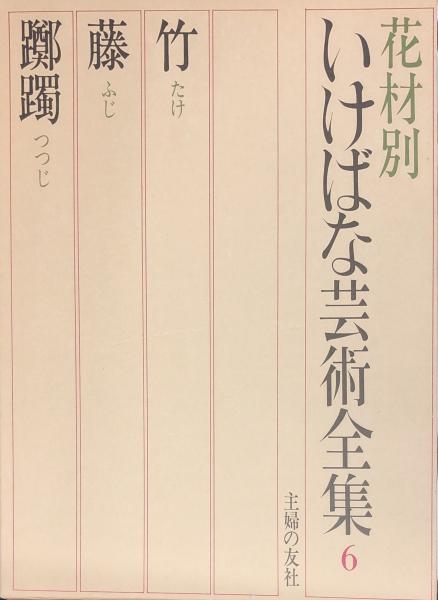 花材別
いけばな芸術全集
6
主婦の友社
竹
たけ
藤
ふじ
躑躅
つつじ